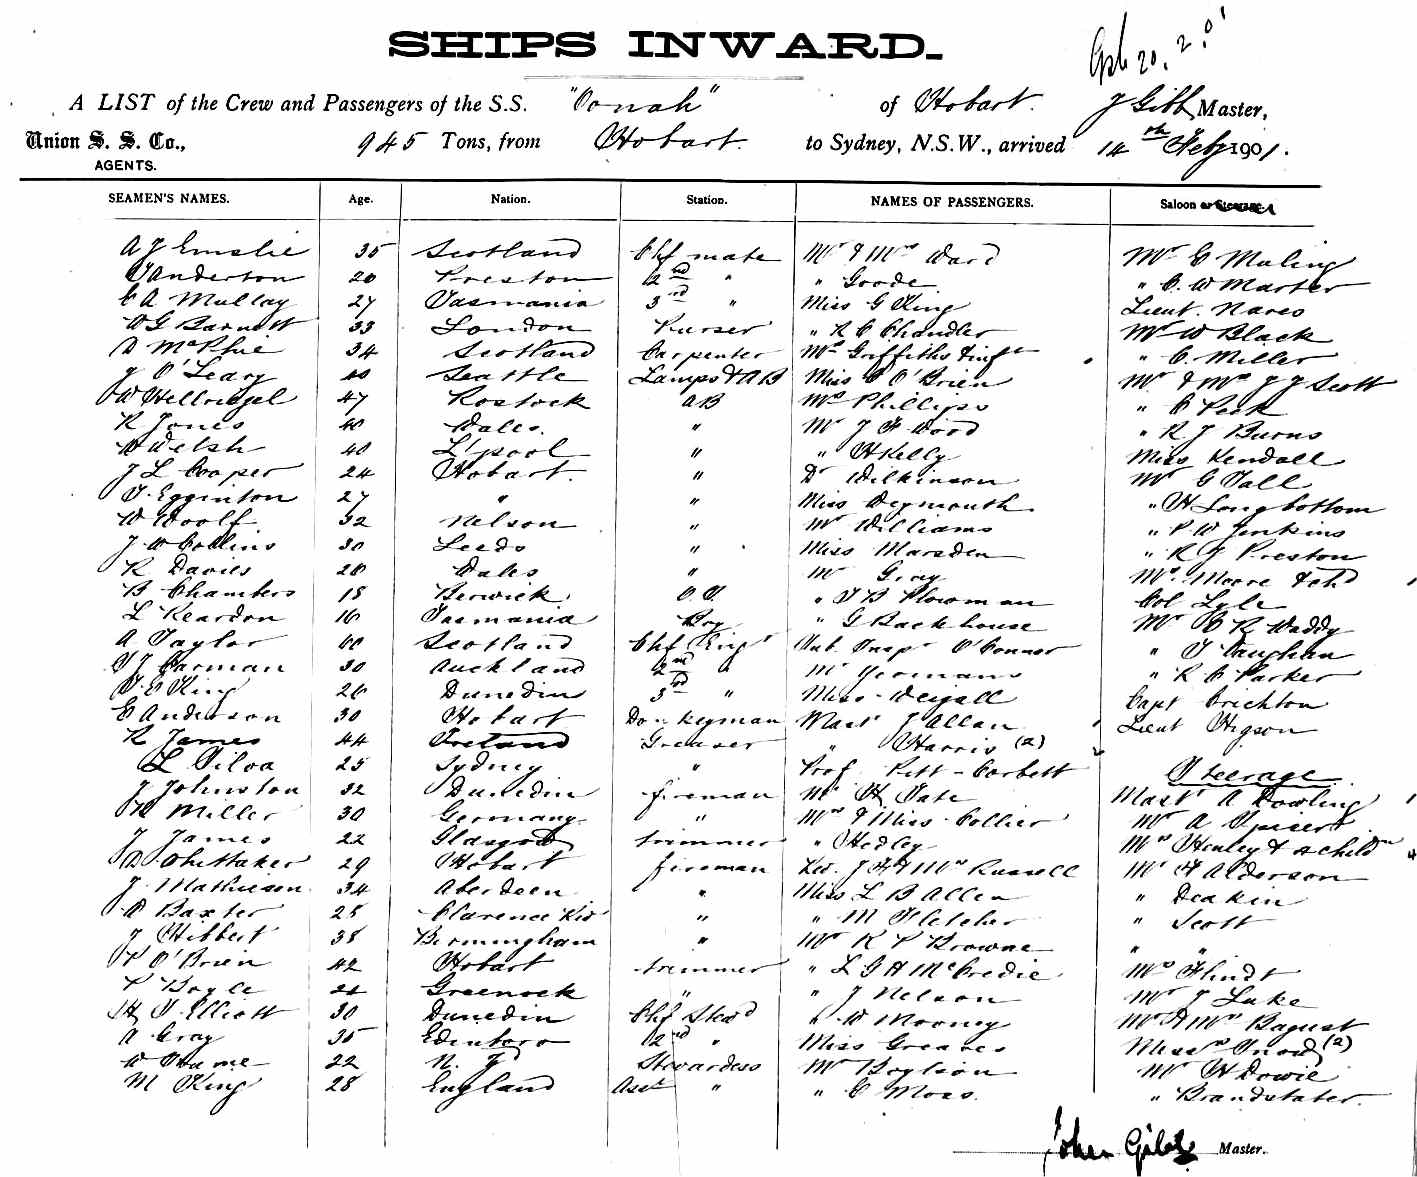 20.2.01
SHIPS INWARD.
A LIST of the Crew and Passengers of the S.S. "Oonah" of Hobart. J Gibb Master,
Union S. S. Co., 945 Tons, from Hobart. to Sydney, N.S.W., arrived 14th Feby 1901.
AGENTS.
SEAMEN'S NAMES. Age. Nation. Station. NAMES OF PASSENGERS. Saloon or Steerage.
A J Emslie 35 Scotland Chf mate Mr & Mrs Ward Mr C Maling
Anderton 20 Preston 2nd " " Goode " C. W Marter
C A Mullay 27 Tasmania 3rd " Miss G King Lieut. Nares
W G Barnett 33 London Purser " R C Chandler Mr W Black
D McPhie 34 Scotland Carpenter Mrs Griffiths & inft " C. Miller
J O'Leary 40 Seattle Lamps & AB Miss C O'Brien Mr & Mrs J J Scott
W Hellriegel 47 Rostock AB Mrs Phillips " C Peck
R Jones 40 Wales. " Mr J F Wood " R J Burns
W Welsh 40 L'pool " " H Kelly Miss Kendall
J L Cooper 24 Hobart. " Dr Wilkinson Mr G Tall
T. Egginton 27 " " Miss Weymouth " H Longbottom
W Woolf 32 Nelson " Mr Williams " P W Jenkins
J W Collins 30 Leeds " Miss Marsden " R J Preston
R Davies 28 Wales " Mr Gray Mrs. Moore & chd
B Chambers 18 Berwick O.S. " T B Plowman Col Lyle
L Reardon 16 Tasmania Boy " G Backhouse Mr C R Waddy
A Taylor 60 Scotland Chf Engr Sub Insp O'Connor " T Vaughan
T J Carman 30 Auckland 2nd " Mr Yeomans " R C Parker
T. E King 26 Dunedin 3rd " Miss Weigall Capt Crichton
E Anderson 30 Hobart Donkeyman Mast J Allan Lieut Higson
R James 44 Ireland Greaser " Harris (2)
L Silva 25 Sydney " Prof. Pitt-Corbett Steerage
J Johnston 32 Dunedin fireman Mr H Tate Mast A Dowling
H Miller 30 Germany " Mrs & Miss Collier Mr A Spicer
J James 22 Glasgow trimmer " Hedley Mrs Henley & 4 childn
A Whittaker 29 Hobart fireman Rev. J F & Mrs Russell Mr F Alderson
J. Mathieson 34 Aberdeen " Miss L B Allen " Deakin
A Baxter 25 Clarence Riv " " M Fletcher " Scott
J Hibbert 38 Birmingham " Mr R P Browne " "
T O'Brien 42 Hobart trimmer " L G H McCredie Mrs Flindt
P Boyle 21 Greenock " " J Nelson Mr J Luke
H T Elliott 30 Dunedin Chf Stewd " W Mooney Mr & Mrs Bagust
A Gray 35 Edinboro 2nd " Miss Greaves Misses Snow (2)
W Frame 22 N. Z Stewardess Mr Boylson Mr H Dowie
M King 28 England Asst " " C Moss. " Brandstater.
John Gibb Master.